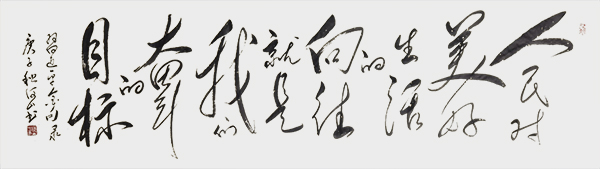 人民对
美好
生活
的
向往
就是
我们
的
奋斗
目标
习近平金句录
庚子